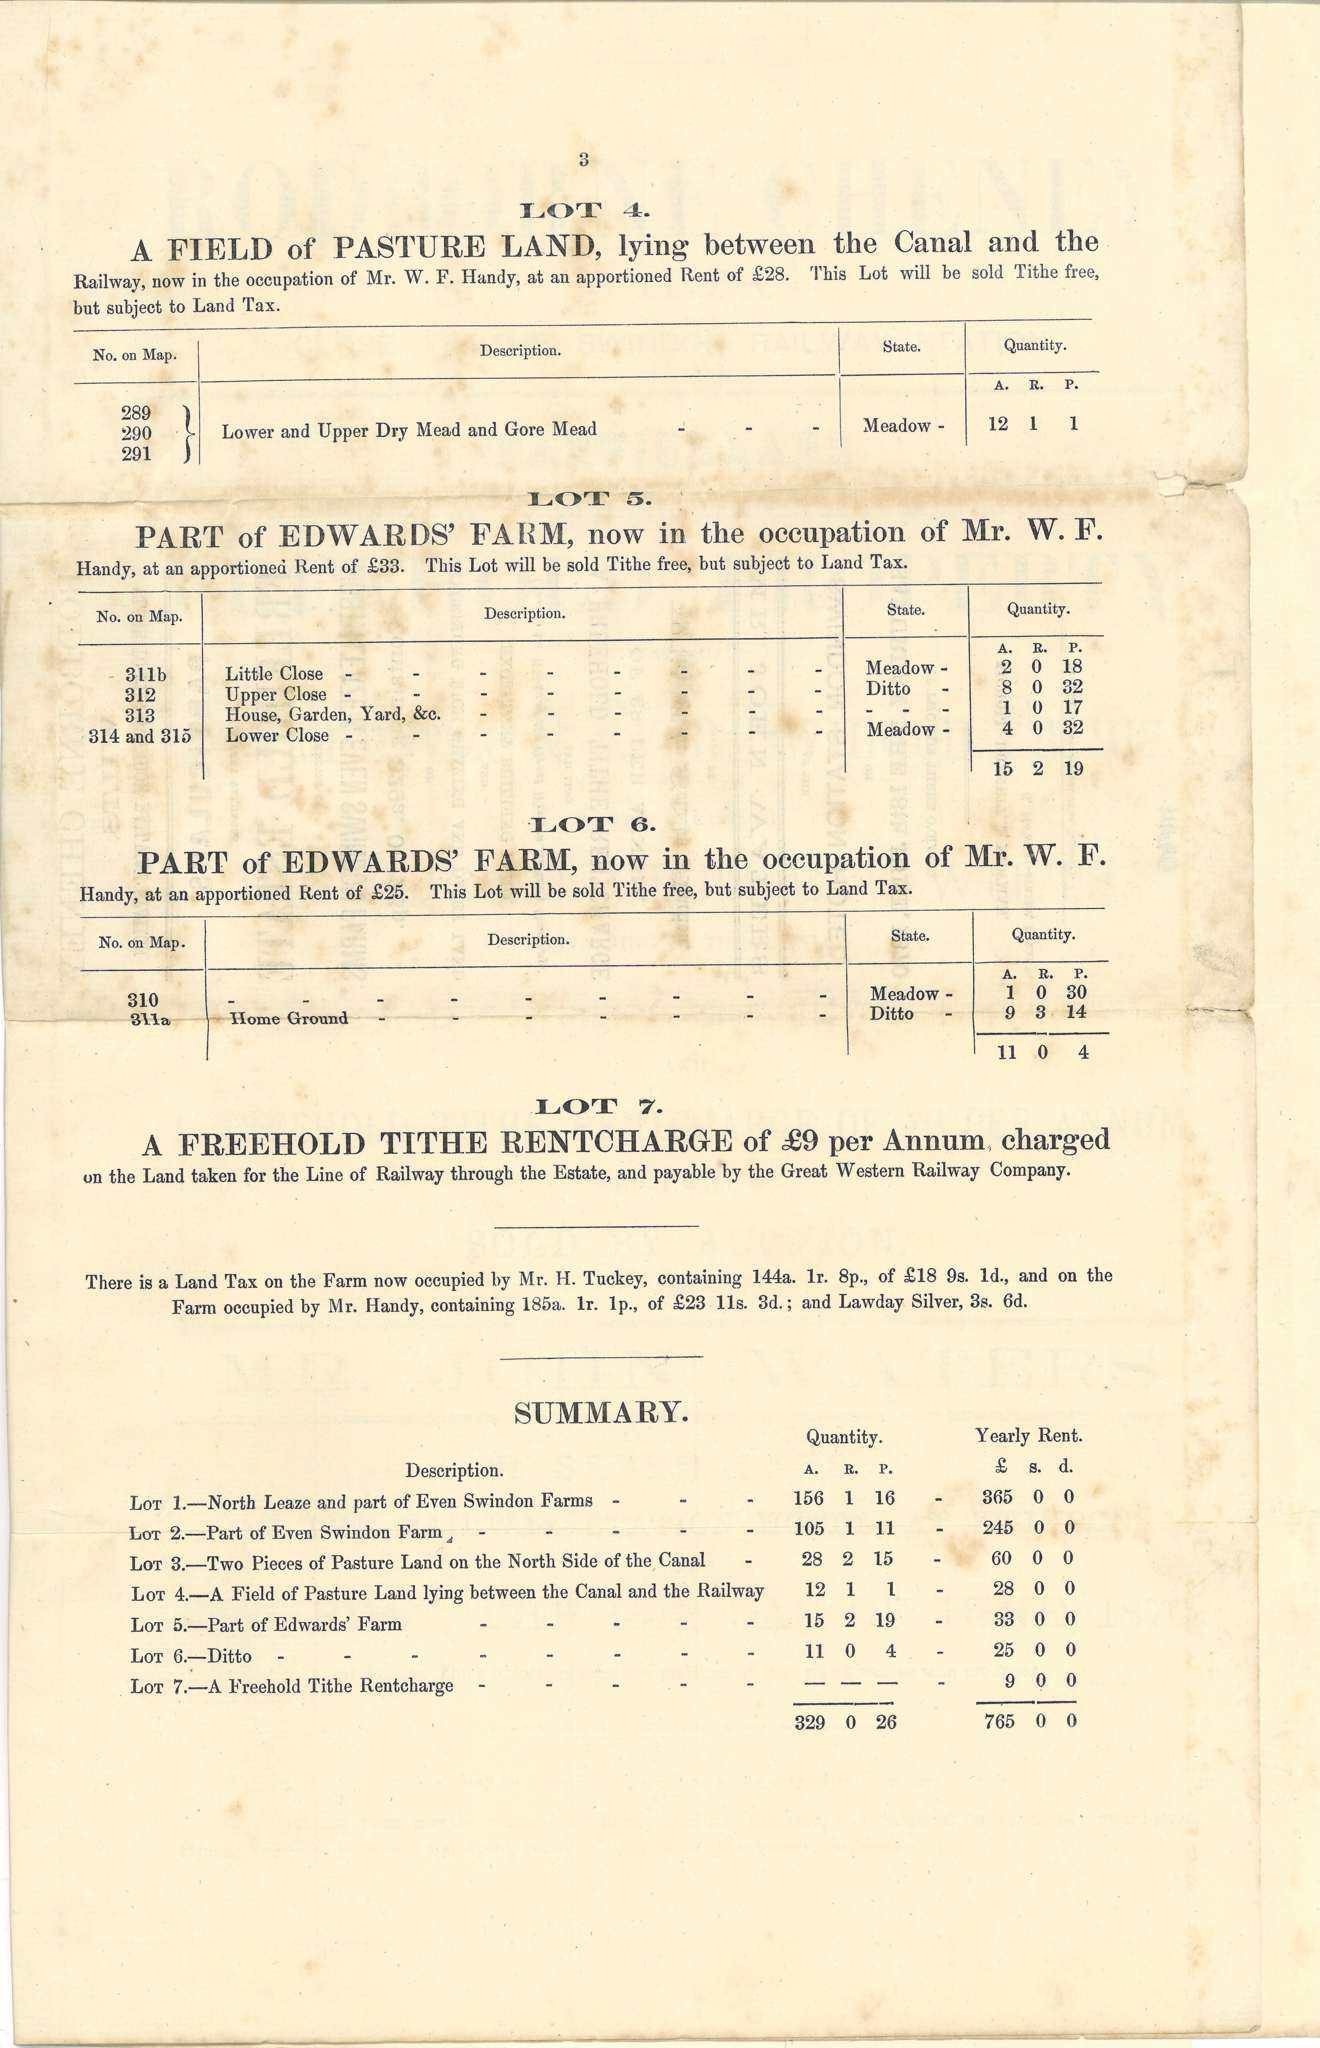 3
LOT 4.
A FIELD of PASTURE LAND, lying between the Canal and the
Railway, now in the occupation of Mr. W. F. Handy, at an apportioned Rent of £28. This Lot will be sold Tithe free,
but subject to Land Tax.
No. on Map. Description. State. Quantity.
A. R. P.
289
290 Lower and Upper Dry Mead and Gore Mead - - - Meadow - 12 1 1
291
LOT 5.
PART of EDWARDS' FARM, now in the occupation of Mr. W. F.
Handy, at an apportioned Rent of £33. This Lot will be sold Tithe free, but subject to Land Tax.
No. on Map. Description. State. Quantity.
A. R. P.
311b Little Close - - - - - - - - Meadow - 2 0 18
312 Upper Close - - - - - - - - Ditto - 8 0 32
313 House, Garden, Yard, &c. - - - - - - - - - 1 0 17
314 and 315 Lower Close - - - - - - - - Meadow - 4 0 32
15 2 19
LOT 6.
PART of EDWARDS' FARM, now in the occupation of Mr. W. F.
Handy, at an apportioned Rent of £25. This Lot will be sold Tithe free, but subject to Land Tax.
No. on Map. Description. State. Quantity.
A. R. P.
310 - - - - - - - - - Meadow - 1 0 30
311a Home Ground - - - - - - - Ditto - 9 3 14
11 0 4
LOT 7.
A FREEHOLD TITHE RENTCHARGE of £9 per Annum, charged
on the Land taken for the Line of Railway through the Estate, and payable by the Great Western Railway Company.
There is a Land Tax on the Farm now occupied by Mr. H. Tuckey, containing 144a. 1r. 8p., of £18 9s. 1d., and on the
Farm occupied by Mr. Handy, containing 185a. 1r. 1p., of £23 11s. 3d.; and Lawday Silver, 3s. 6d.
SUMMARY.
Quantity. Yearly Rent.
Description. A. R. P. £ s. d.
LOT 1.—North Leaze and part of Even Swindon Farms - - - 156 1 16 - 365 0 0
LOT 2.—Part of Even Swindon Farm - - - - - 105 1 11 - 245 0 0
LOT 3.—Two Pieces of Pasture Land on the North Side of the Canal - 28 2 15 - 60 0 0
LOT 4.—A Field of Pasture Land lying between the Canal and the Railway 12 1 1 - 28 0 0
LOT 5.—Part of Edwards' Farm - - - - - 15 2 19 - 33 0 0
LOT 6.—Ditto - - - - - - - - 11 0 4 - 25 0 0
LOT 7.—A Freehold Tithe Rentcharge - - - - - — — — - 9 0 0
329 0 26 765 0 0